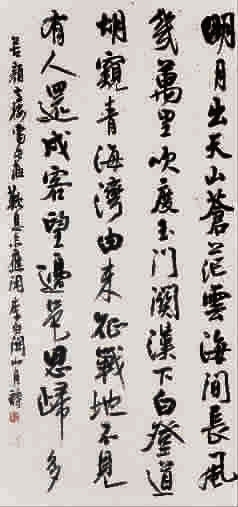 明月出天山蒼茫雲海間長風
幾萬里吹度玉門關漢下白登道
胡窺青海灣由来征戰地不見
有人還戍客望邊邑思歸多
苦顏高樓當此夜歎息未應閑 李白關山月詩